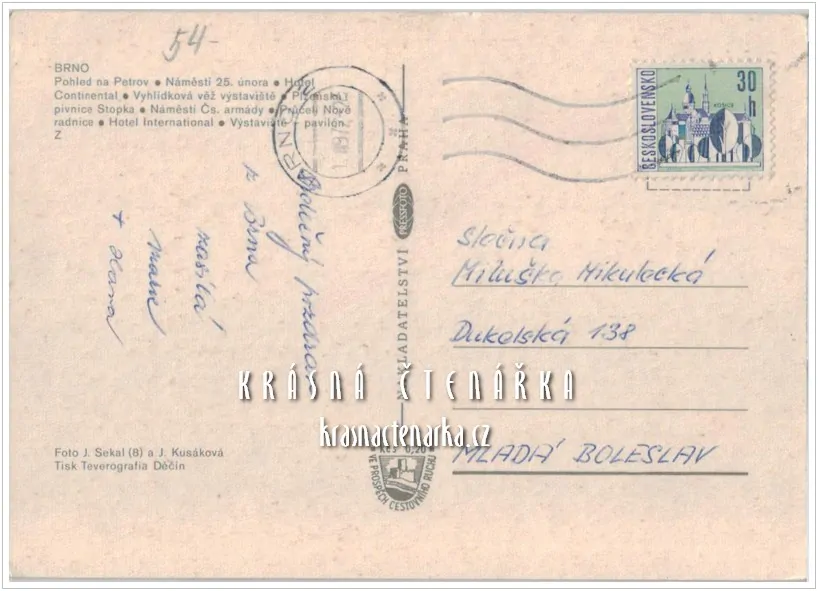 54-
BRNO
Pohled na Petrov ● Náměstí 25. února ● Hotel
Continental ● Vyhlídková věž výstaviště ● Plzeňská
pivnice Stopka ● Náměstí Čs. armády ● Průčelí Nové
radnice ● Hotel International ● Výstaviště - pavilón
Z
BRNO
ČESKOSLOVENSKO
30
h
KOŠICE
Srdečný pozdrav
z Brna
zasílá
Marie
+ Hana
NAKLADATELSTVÍ PRESSFOTO PRAHA
Slečna
Miluška Mikulecká
Dukelská 138
MLADÁ BOLESLAV
KRÁSNÁ ČTENÁŘKA
krasnactenarka.cz
Foto J. Sekal (8) a J. Kusáková
Tisk Teverografia Děčín
Kčs 0,20
VE PROSPĚCH CESTOVNÍHO RUCHU